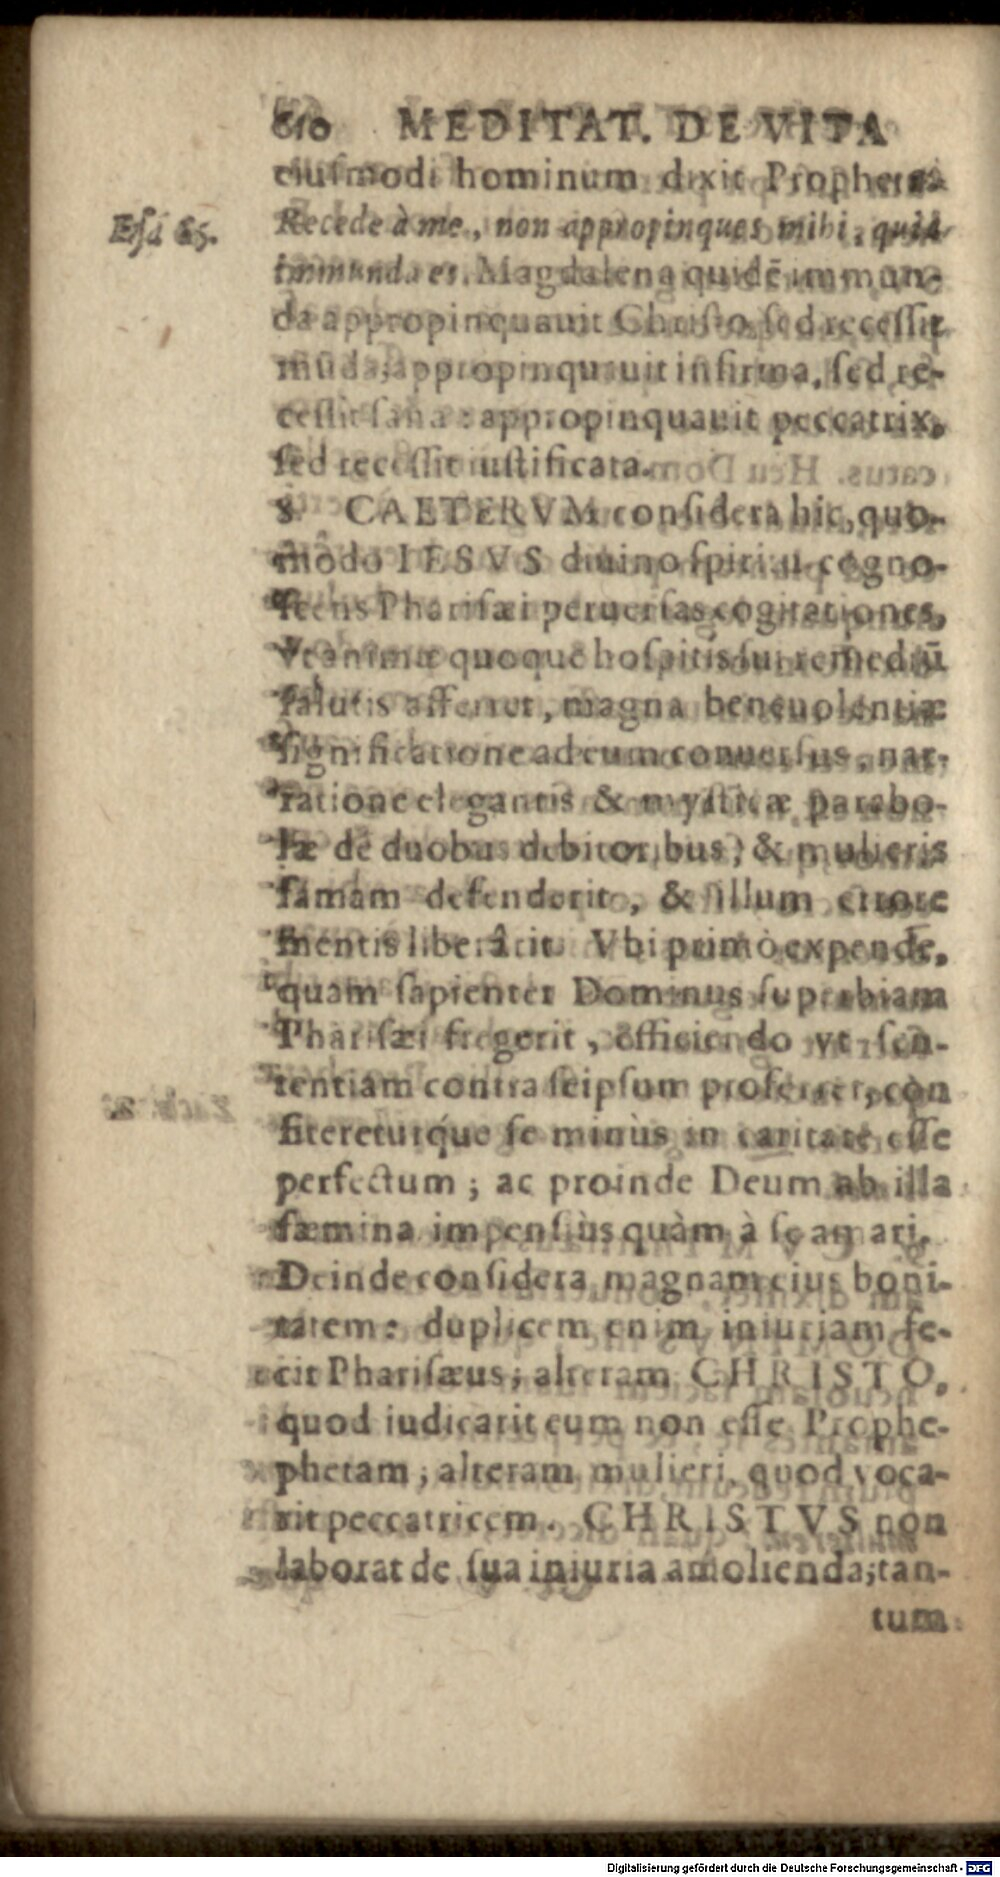 610 MEDITAT. DE VITA
eiusmodi hominum dixit Propheta:
Esa 65.
Recede à me, non appropinques mihi, quia
immunda es. Magdalena quidē immun-
da appropinquauit Christo, sed recessit
mūda; appropinquauit infirma, sed re-
cessit sana: appropinquauit peccatrix,
sed recessit iustificata.
8. CAETERVM considera hic, quo-
modo IESVS diuino spiritu cogno-
scens Pharisæi peruersas cogitationes,
vt animæ quoque hospitis sui remediū
salutis afferret, magna beneuolentiæ
significatione ad eum conuersus, nar-
ratione elegantis & mysticæ parabo-
læ de duobus debitoribus, & mulieris
famam defenderit, & illum errore
mentis liberârit. Vbi primò expende,
quam sapienter Dominus superbiam
Pharisæi fregerit, efficiendo vt sen-
tentiam contra seipsum proferret, con
fitereturque se minùs in caritate esse
perfectum; ac proinde Deum ab illa
fæmina impensiùs quàm à se amari.
Deinde considera magnam eius boni-
tatem: duplicem enim iniuriam fe-
cit Pharisæus; alteram CHRISTO,
quod iudicarit eum non esse Prophe-
phetam; alteram mulieri, quod voca-
rit peccatricem. CHRISTVS non
laborat de sua iniuria amolienda; tan-
tum
Digitalisierung gefördert durch die Deutsche Forschungsgemeinschaft - DFG